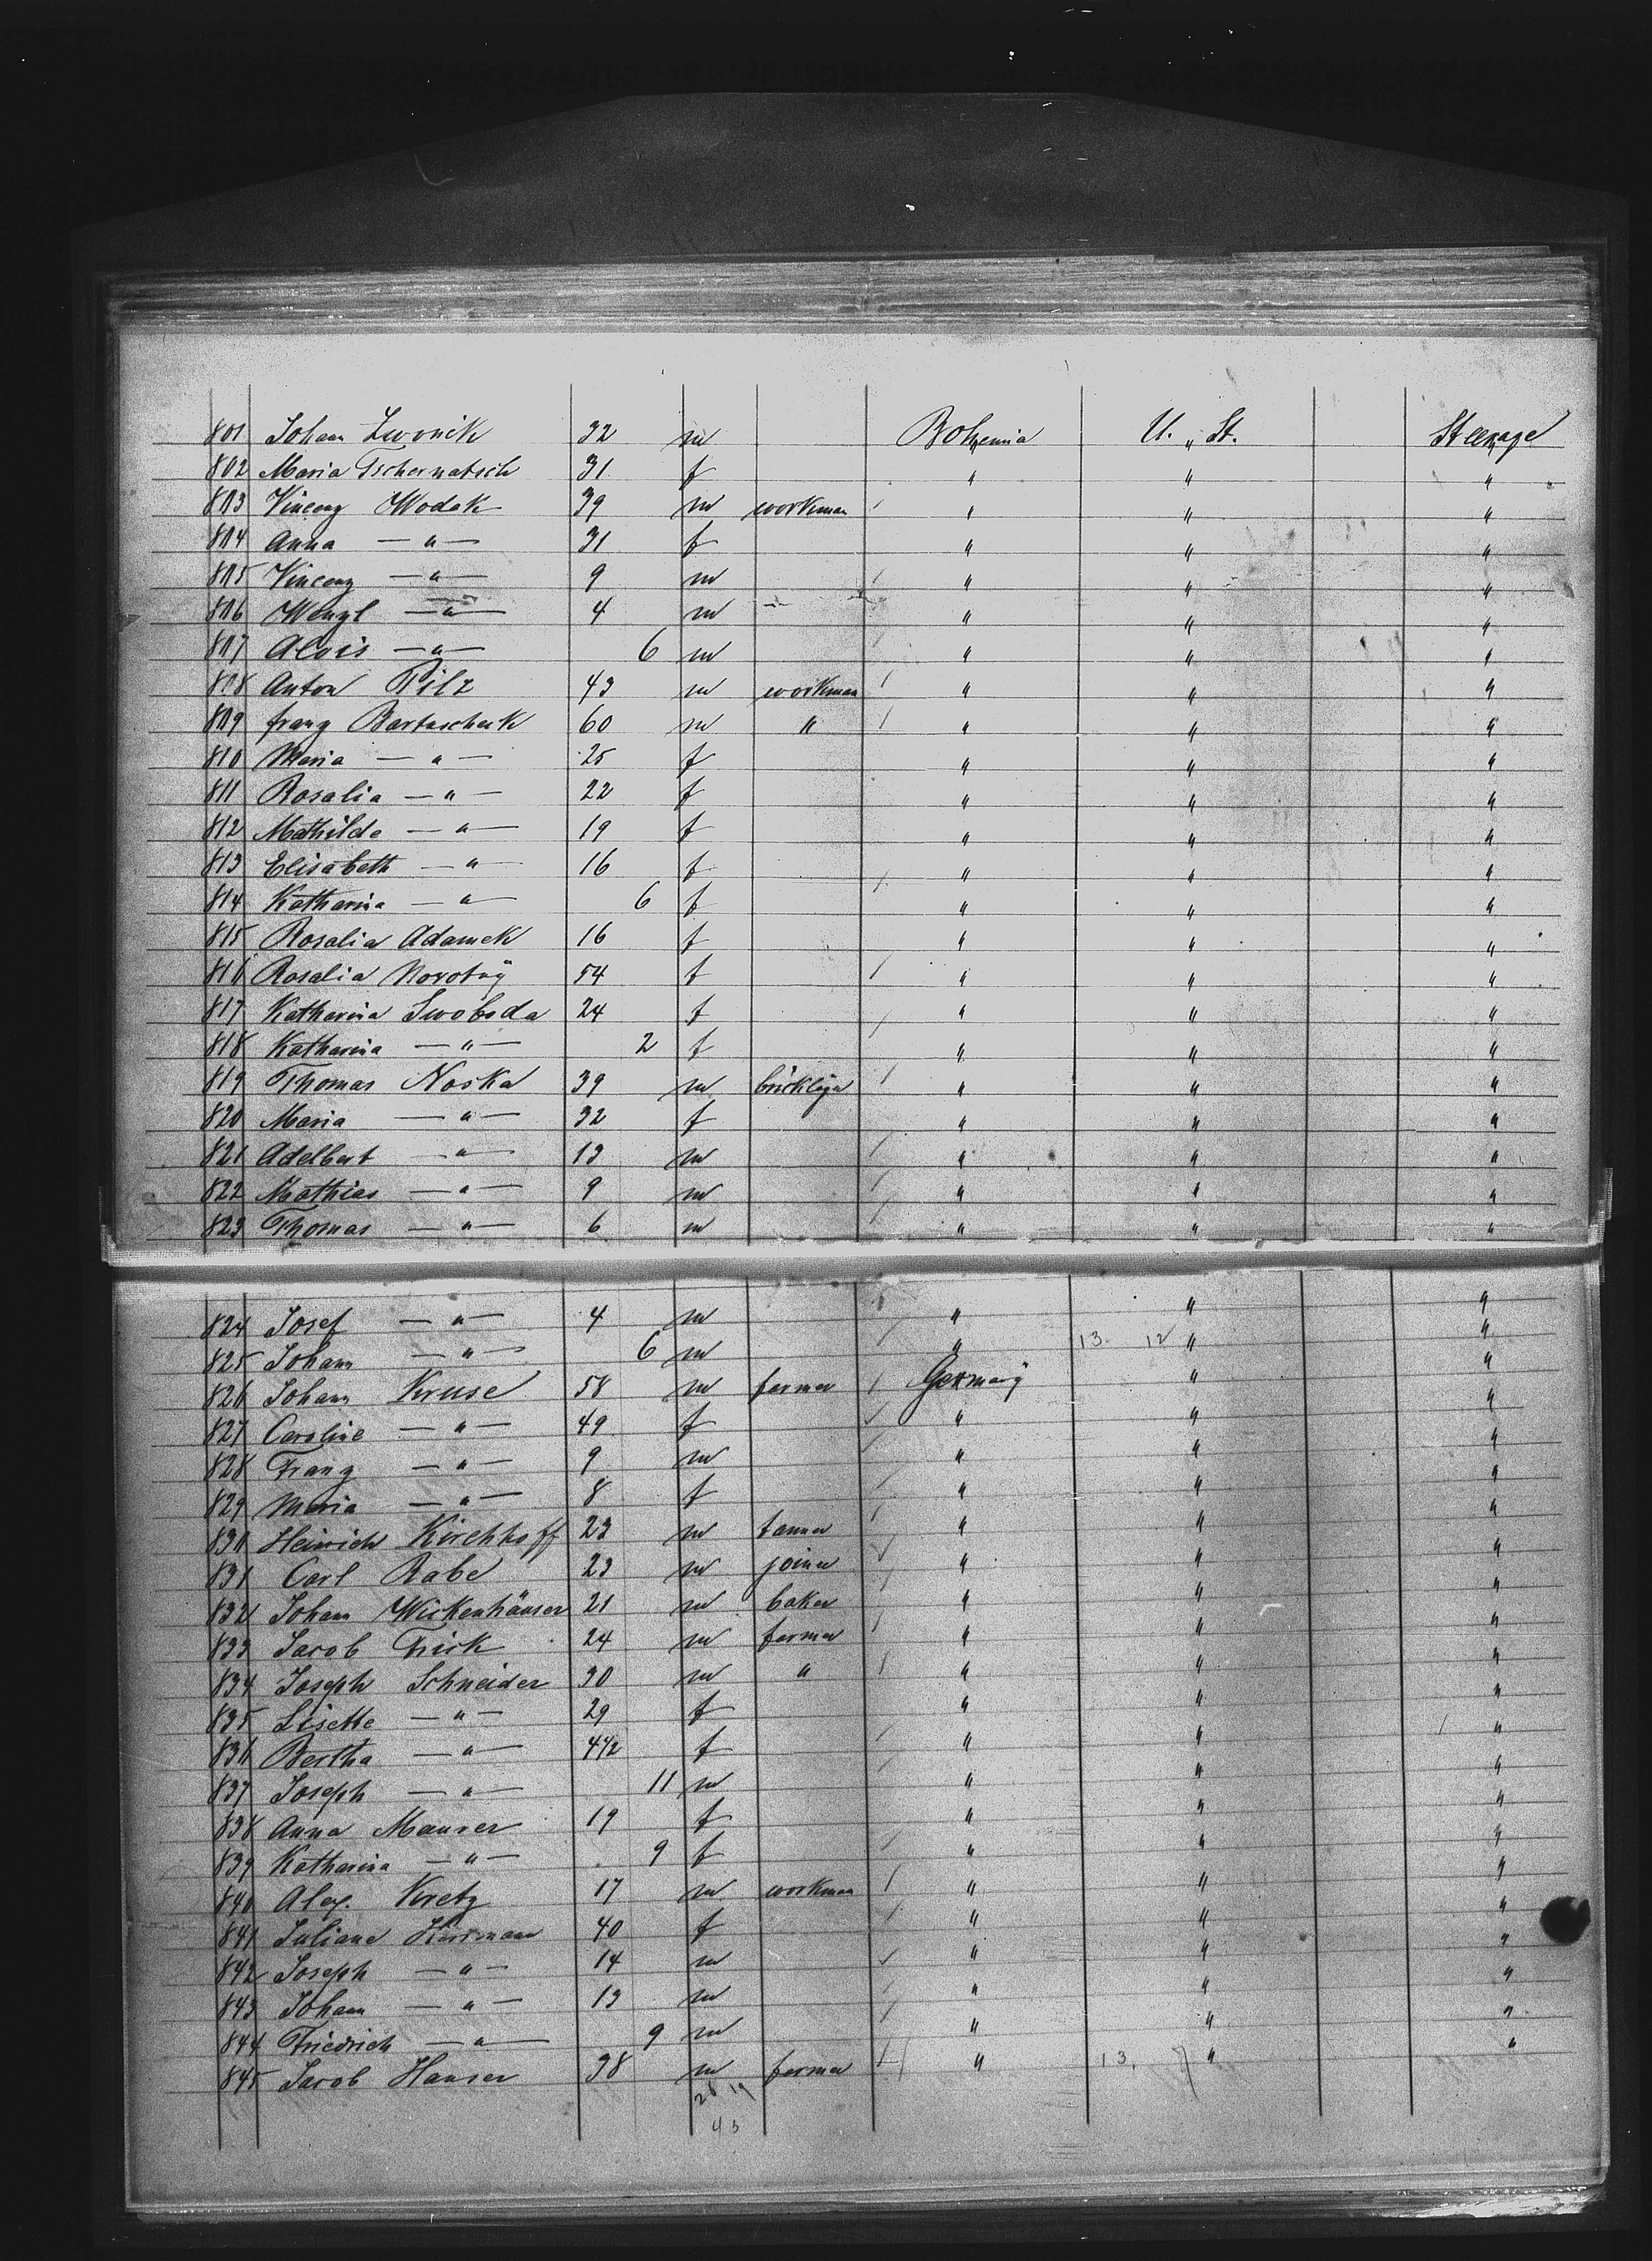 801 Johann Zwonik 32 m Bohemia U. St. Steerage
802 Maria Tschernatsch 31 f " " "
803 Vincenz Wodak 39 m workman " " "
804 Anna — " — 31 f " " "
805 Vincenz — " — 9 m " " "
806 Wenzl — " — 4 m " " "
807 Alois — " — 6 m " " "
808 Anton Pilz 43 m workman " " "
809 Franz Bartascheck 60 m " " " "
810 Maria — " — 25 f " " "
811 Rosalia — " — 22 f " " "
812 Mathilde — " — 19 f " " "
813 Elisabeth — " — 16 f " " "
814 Katharina — " — 6 f " " "
815 Rosalia Adamek 16 f " " "
816 Rosalia Novotny 54 f " " "
817 Katharina Swoboda 24 f " " "
818 Katharina — " — 2 f " " "
819 Thomas Noska 39 m " " "
820 Maria — " — 32 f " " "
821 Adelbert — " — 13 m " " "
822 Mathias — " — 9 m " " "
823 Thomas — " — 6 m " " "
824 Josef — " — 4 m " " "
825 Johann — " — 6 m " 13 12 " "
826 Johann Kruse 58 m farmer Germany " "
827 Caroline — " — 49 f " " "
828 Franz — " — 9 m " " "
829 Maria — " — 8 f " " "
830 Heinrich Kirchhoff 23 m tanner " " "
831 Carl Rabe 23 m joiner " " "
832 Johann Wickenhäuser 21 m baker " " "
833 Jacob Frick 24 m farmer " " "
834 Joseph Schneider 30 m " " " "
835 Lisette — " — 29 f " " "
836 Bertha — " — 4 1/2 f " " "
837 Joseph — " — 11 m " " "
838 Anna Maurer 19 f " " "
839 Katharina — " — 9 f " " "
840 Alex. Kretz 17 m workman " " "
841 Juliane Herrmann 40 f " " "
842 Joseph — " — 14 m " " "
843 Johann — " — 13 m " " "
844 Friedrich — " — 9 m " " "
845 Jacob Hauser 38 m farmer " 13. 7 " "
26 19
43